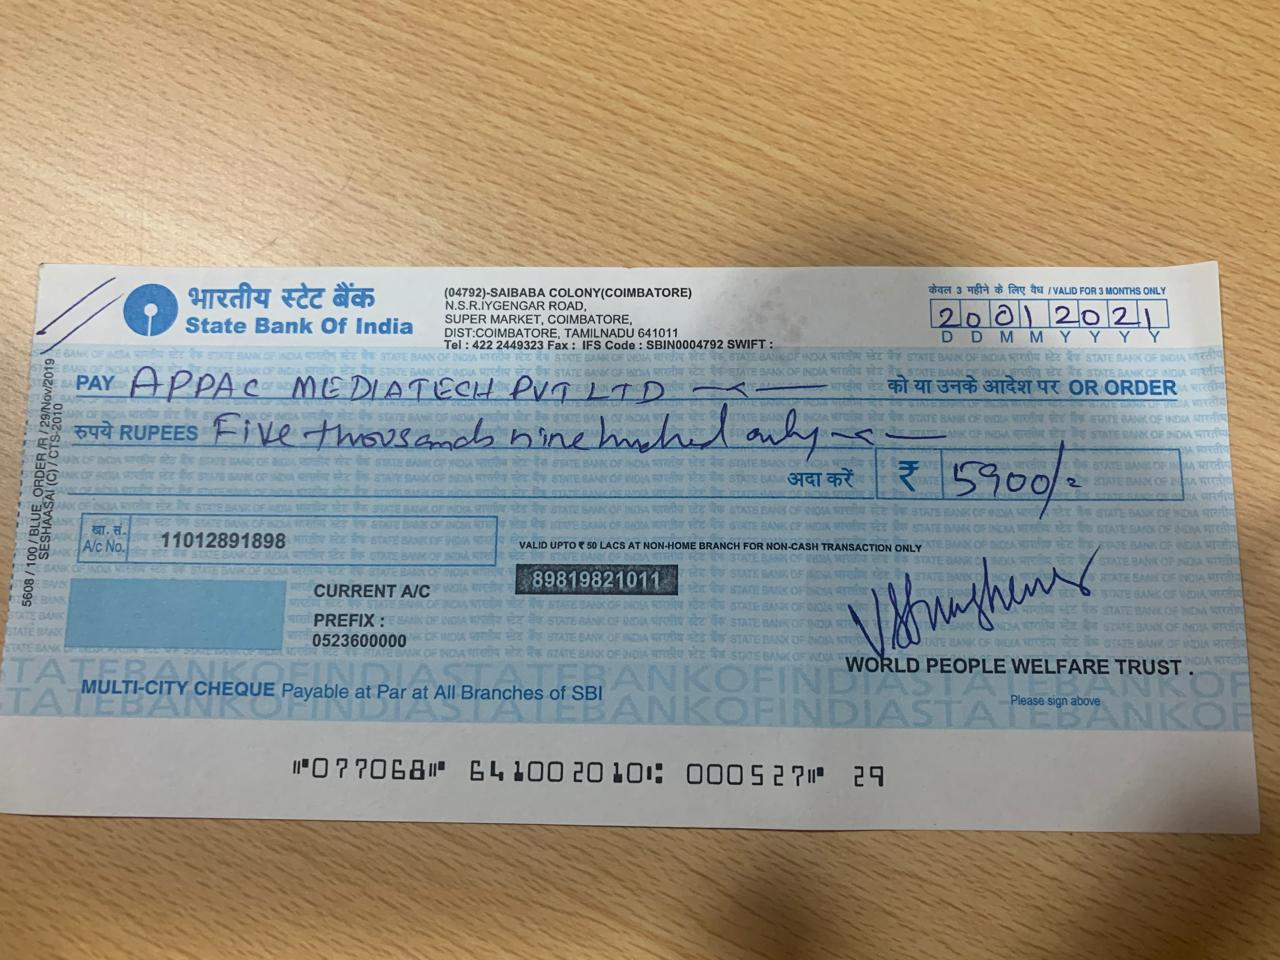 भारतीय स्टेट बैंक
State Bank Of India
(04792)-SAIBABA COLONY(COIMBATORE)
N.S.R.IYGENGAR ROAD,
SUPER MARKET, COIMBATORE,
DIST:COIMBATORE, TAMILNADU 641011
Tel : 422 2449323 Fax : IFS Code : SBIN0004792 SWIFT :
केवल 3 महीने के लिए वैध / VALID FOR 3 MONTHS ONLY
20012021
D D M M Y Y Y Y
PAY APPAC MEDIATECH PVT LTD को या उनके आदेश पर OR ORDER
रुपये RUPEES Five thousands nine hundred only
अदा करें ₹ 5900/=
खा. सं.
A/c No. 11012891898
VALID UPTO ₹ 50 LACS AT NON-HOME BRANCH FOR NON-CASH TRANSACTION ONLY
89819821011
CURRENT A/C
PREFIX :
0523600000
WORLD PEOPLE WELFARE TRUST .
Please sign above
MULTI-CITY CHEQUE Payable at Par at All Branches of SBI
STATEBANKOFINDIASTATEBANKOF
⑈077068⑈ 641002010⑆ 000527⑈ 29
5608 / 100 / BLUE_ORDER /R/ /29/Nov/2019
SESHAASAI (C) / CTS-2010